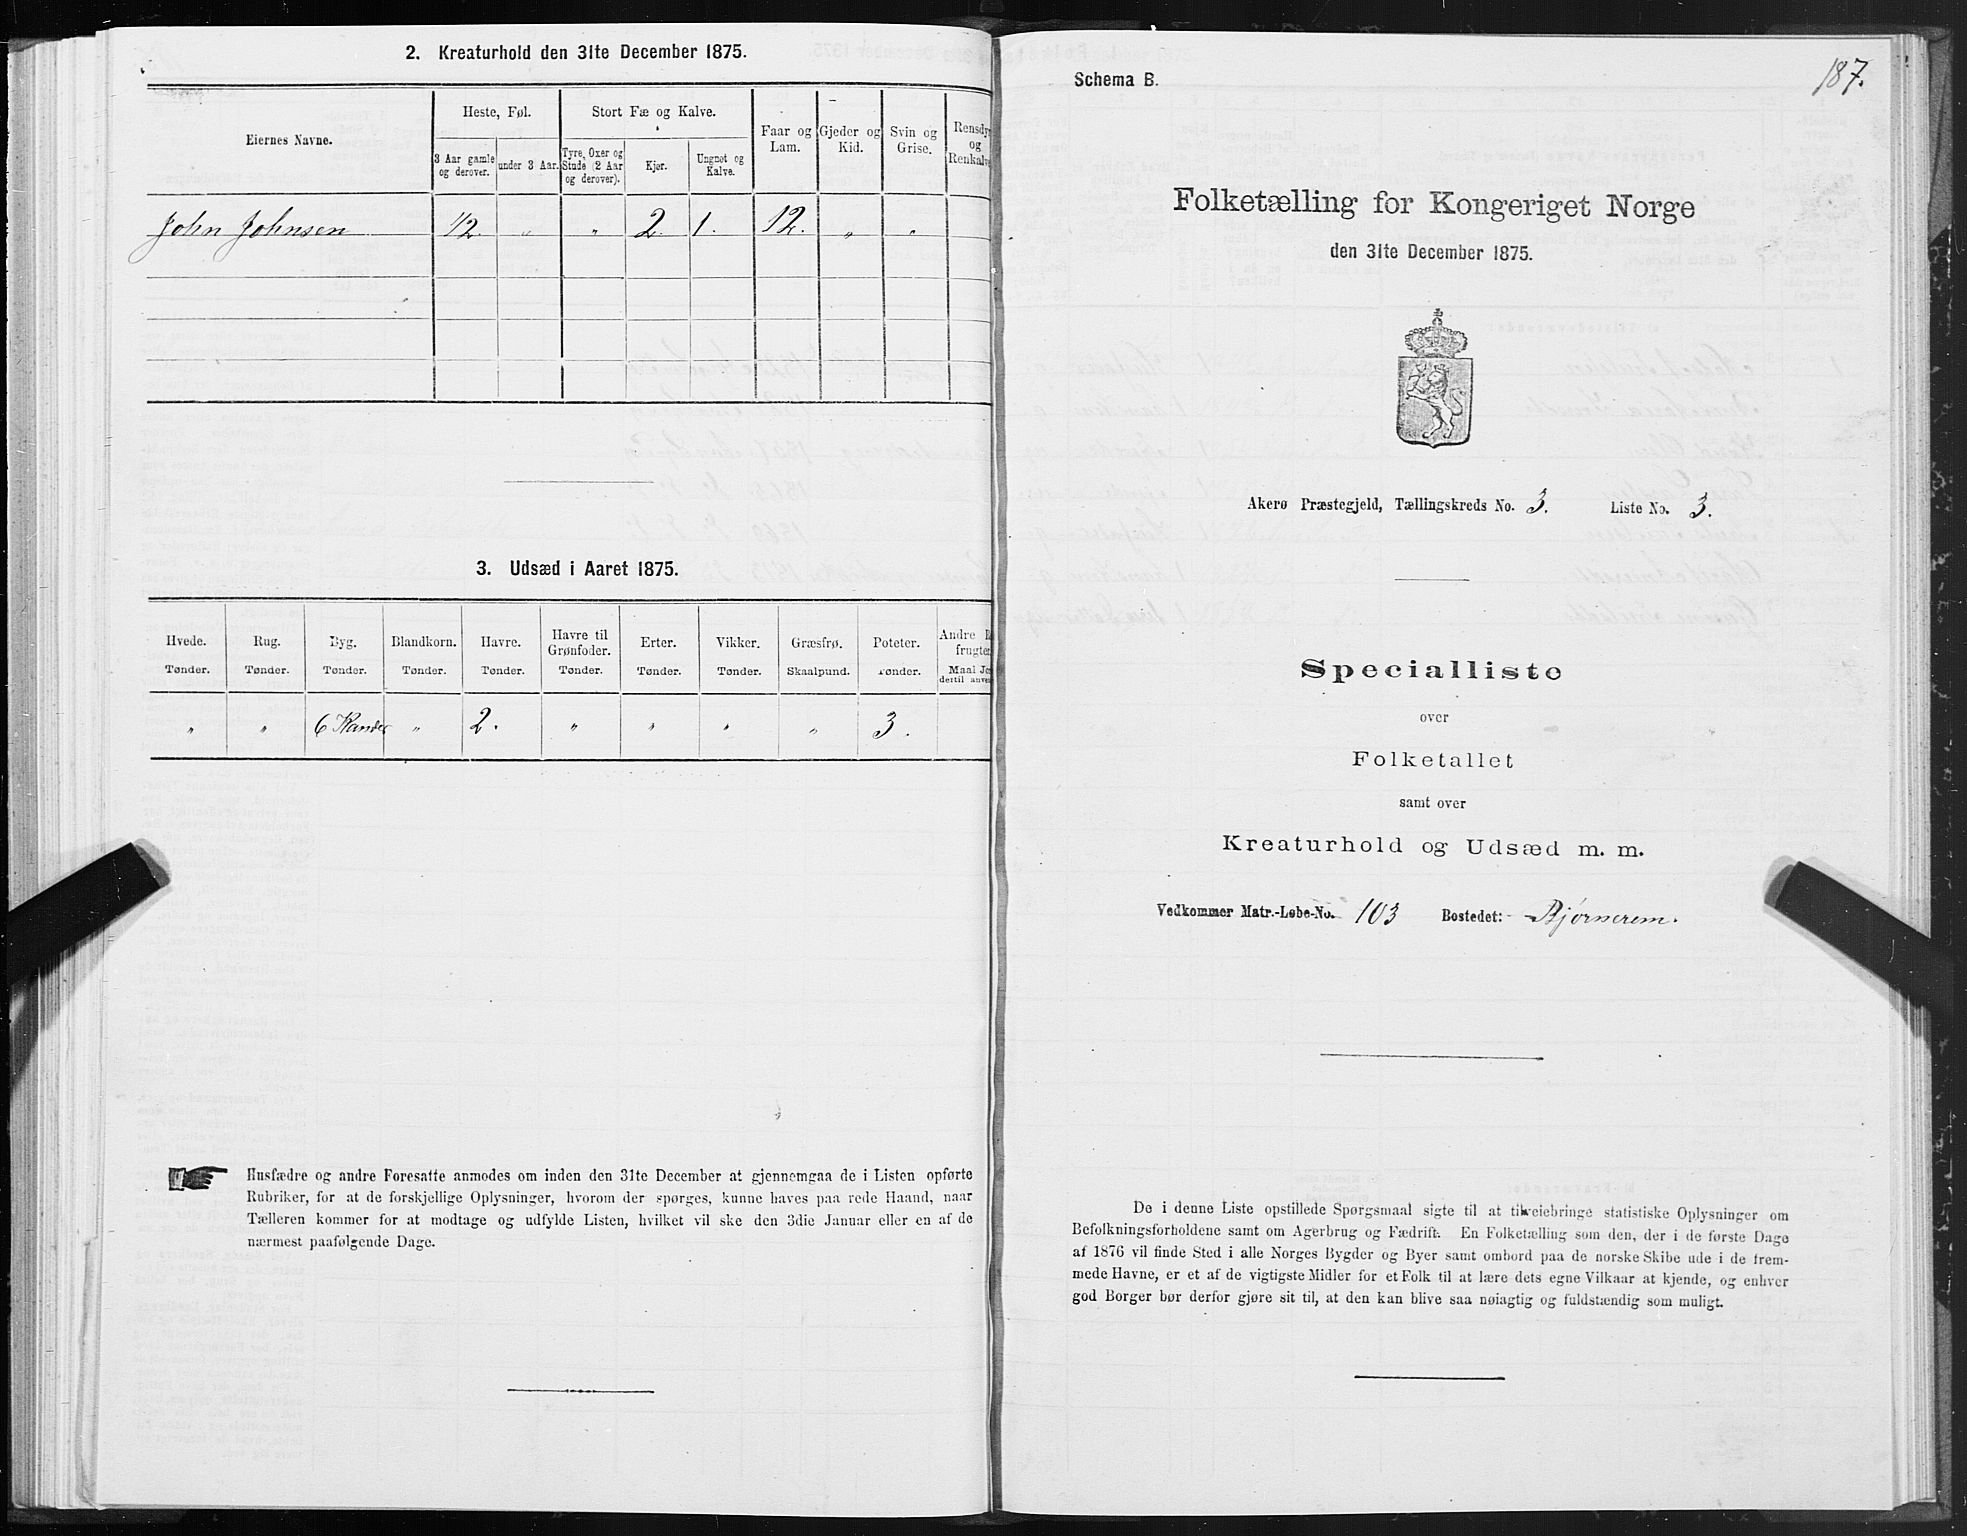 2. Kreaturhold den 31te December 1875.
Eiernes Navne.
Heste, Føl.
Stort Fæ og Kalve.
Faar og Lam.
Gjeder og Kid.
Svin og Grise.
Rensdyr og Renkalve
3 Aar gamle og derover.
under 3 Aar.
Tyre, Oxer og Stude (2 Aar og derover).
Kjør.
Ungnøt og Kalve.
John Johnsen 1/2. " " 2. 1. 12. " "
3. Udsæd i Aaret 1875.
Hvede. Rug. Byg. Blandkorn. Havre. Havre til Grønfoder. Erter. Vikker. Græsfrø. Poteter. Andre
frugter
Tønder. Tønder. Tønder. Tønder. Tønder. Tønder. Tønder. Tønder. Skaalpund. Tønder. Maal
dertil
" " 6 Kander " 2. " " " " 3.
Husfædre og andre Foresatte anmodes om inden den 31te December at gjennemgaa de i Listen opførte
Rubriker, for at de forskjellige Oplysninger, hvorom der spørges, kunne haves paa rede Haand, naar
Tælleren kommer for at modtage og udfylde Listen, hvilket vil ske den 3die Januar eller en af de
nærmest paafølgende Dage.
187.
Schema B.
Folketælling for Kongeriget Norge
den 31te December 1875.
Akerø Præstegjeld, Tællingskreds No. 3. Liste No. 3.
Specialliste
over
Folketallet
samt over
Kreaturhold og Udsæd m. m.
Vedkommer Matr.-Løbe-No. 103 Bostedet: Bjørnerem.
De i denne Liste opstillede Spørgsmaal sigte til at tilveiebringe statistiske Oplysninger om
Befolkningsforholdene samt om Agerbrug og Fædrift. En Folketælling som den, der i de første Dage
af 1876 vil finde Sted i alle Norges Bygder og Byer samt ombord paa de norske Skibe ude i de frem-
mede Havne, er et af de vigtigste Midler for et Folk til at lære dets egne Vilkaar at kjende, og enhver
god Borger bør derfor gjøre sit til, at den kan blive saa nøiagtig og fuldstændig som muligt.